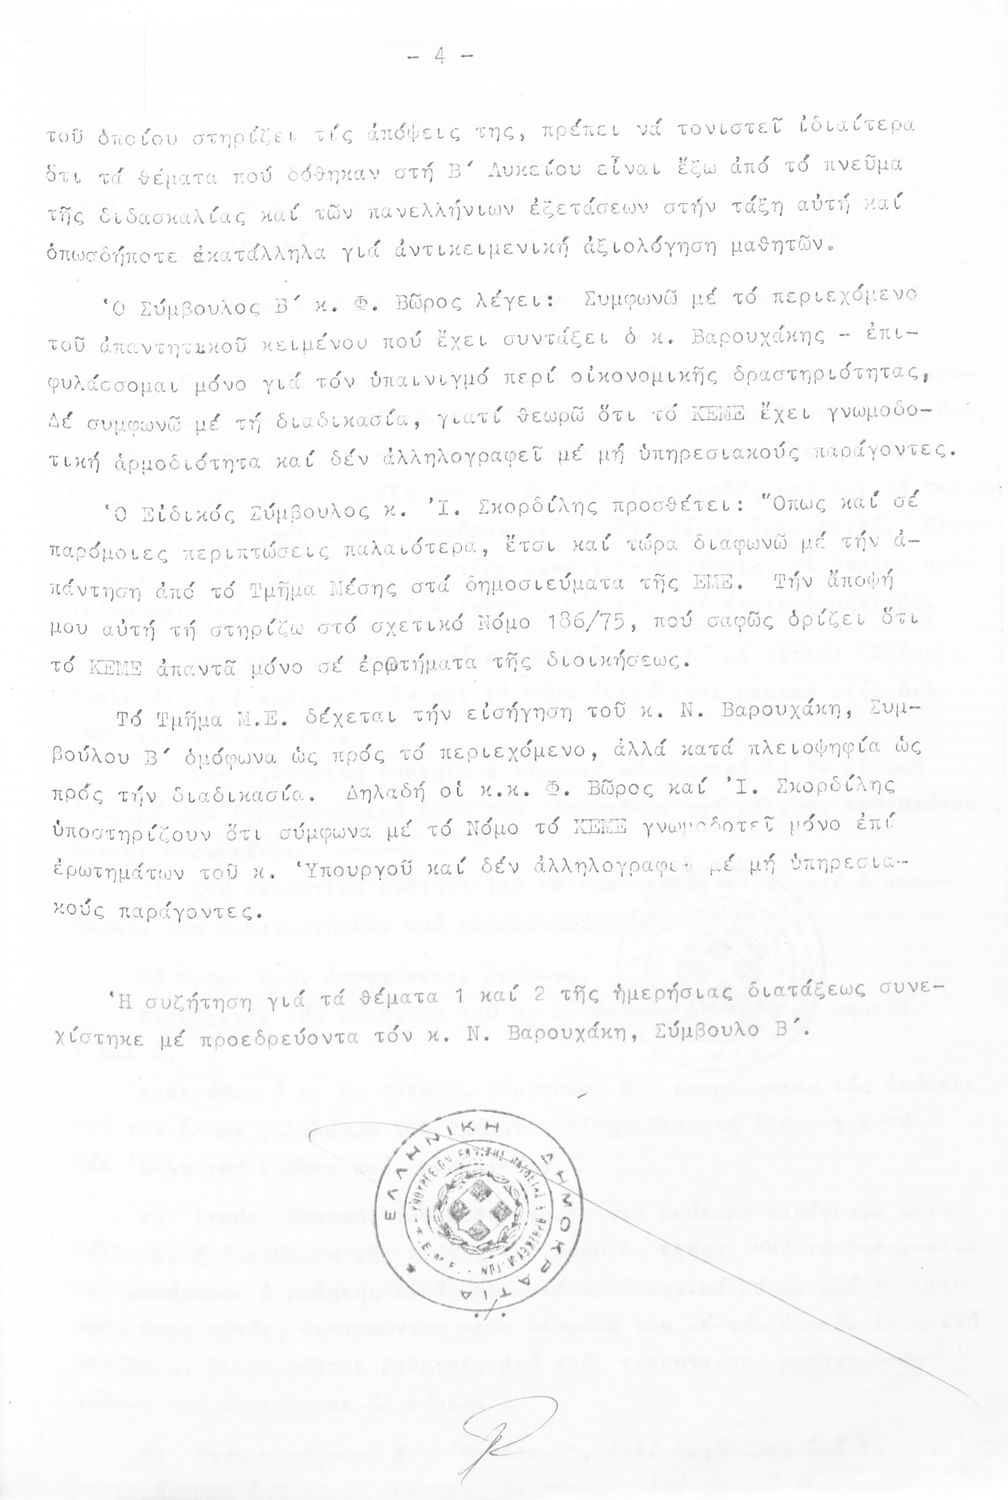 - 4 -
τοῦ ὁποίου στηρίζει τίς ἀπόψεις της, πρέπει νά τονιστεῖ ἰδιαίτερα
ὅτι τά θέματα πού δόθηκαν στή Β΄ Λυκείου εἶναι ἔξω ἀπό τό πνεῦμα
τῆς διδασκαλίας καί τῶν πανελλήνιων ἐξετάσεων στήν τάξη αὐτή καί
ὁπωσδήποτε ἀκατάλληλα γιά ἀντικειμενική ἀξιολόγηση μαθητῶν.
Ὁ Σύμβουλος Β΄ κ. Φ. Βῶρος λέγει: Συμφωνῶ μέ τό περιεχόμενο
τοῦ ἀπαντητικοῦ κειμένου πού ἔχει συντάξει ὁ κ. Βαρουχάκης – ἐπι-
φυλάσσομαι μόνο γιά τόν ὑπαινιγμό περί οἰκονομικῆς δραστηριότητας,
Δέ συμφωνῶ μέ τή διαδικασία, γιατί θεωρῶ ὅτι τό ΚΕΜΕ ἔχει γνωμοδο-
τική ἁρμοδιότητα καί δέν ἀλληλογραφεῖ μέ μή ὑπηρεσιακούς παράγοντες.
Ὁ Εἰδικός Σύμβουλος κ. Ἰ. Σκορδίλης προσθέτει: Ὅπως καί σέ
παρόμοιες περιπτώσεις παλαιότερα, ἔτσι καί τώρα διαφωνῶ μέ τήν ἀ-
πάντηση ἀπό τό Τμῆμα Μέσης στά δημοσιεύματα τῆς ΕΜΕ. Τήν ἄποψή
μου αὐτή τή στηρίζω στό σχετικό Νόμο 186/75, πού σαφῶς ὁρίζει ὅτι
τό ΚΕΜΕ ἀπαντᾶ μόνο σέ ἐρωτήματα τῆς διοικήσεως.
Τό Τμῆμα Μ.Ε. δέχεται τήν εἰσήγηση τοῦ κ. Ν. Βαρουχάκη, Συμ-
βούλου Β΄ ὁμόφωνα ὡς πρός τό περιεχόμενο, ἀλλά κατά πλειοψηφία ὡς
πρός τήν διαδικασία. Δηλαδή οἱ κ.κ. Φ. Βῶρος καί Ἰ. Σκορδίλης
ὑποστηρίζουν ὅτι σύμφωνα μέ τό Νόμο τό ΚΕΜΕ γνωμοδοτεῖ μόνο ἐπί
ἐρωτημάτων τοῦ κ. Ὑπουργοῦ καί δέν ἀλληλογραφεῖ μέ μή ὑπηρεσια-
κούς παράγοντες.
Ἡ συζήτηση γιά τά θέματα 1 καί 2 τῆς ἡμερήσιας διατάξεως συνε-
χίστηκε μέ προεδρεύοντα τόν κ. Ν. Βαρουχάκη, Σύμβουλο Β΄.
ΕΛΛΗΝΙΚΗ ΔΗΜΟΚΡΑΤΙΑ